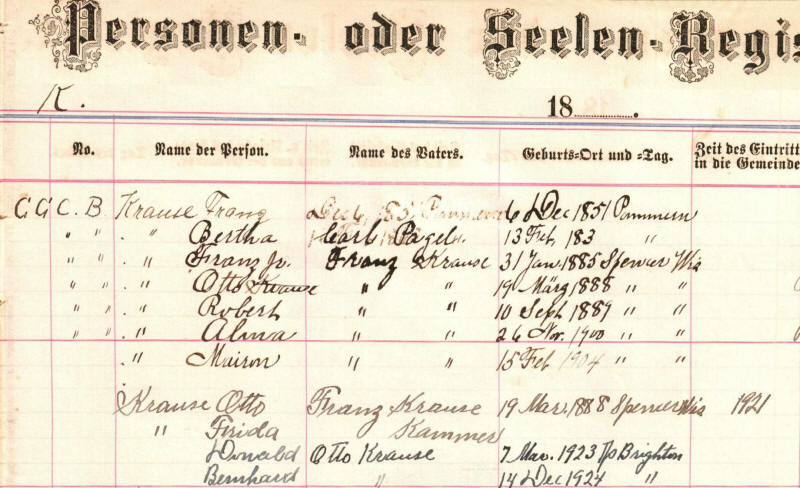 Personen- oder Seelen-Regis
K. 18 .
No. Name der Person. Name des Vaters. Geburts-Ort und =Tag. Zeit des Eintritt in die Gemeinde
G G C. B Krause Franz 6 Dec 1851 Pommern
" " " " Bertha Carl Pagels. 13 Feb. 183 "
" " " " Franz Jr. Franz Krause 31 Jan. 1885 Spencer Wis
" " " " Otto Krause " " 19 März 1888 " "
" " " " Robert " " 10 Sept 1889 " "
" " " " Alma " " 26 Nov. 1900 " "
" " " 15 Feb 1904 " "
Krause Otto Franz Krause 19 Mar. 1888 Spencer Wis 1921
" Frida Kammer
Donald Otto Krause 7 Mar. 1923 Brighton
Bernhard " 14 Dec 1924 "